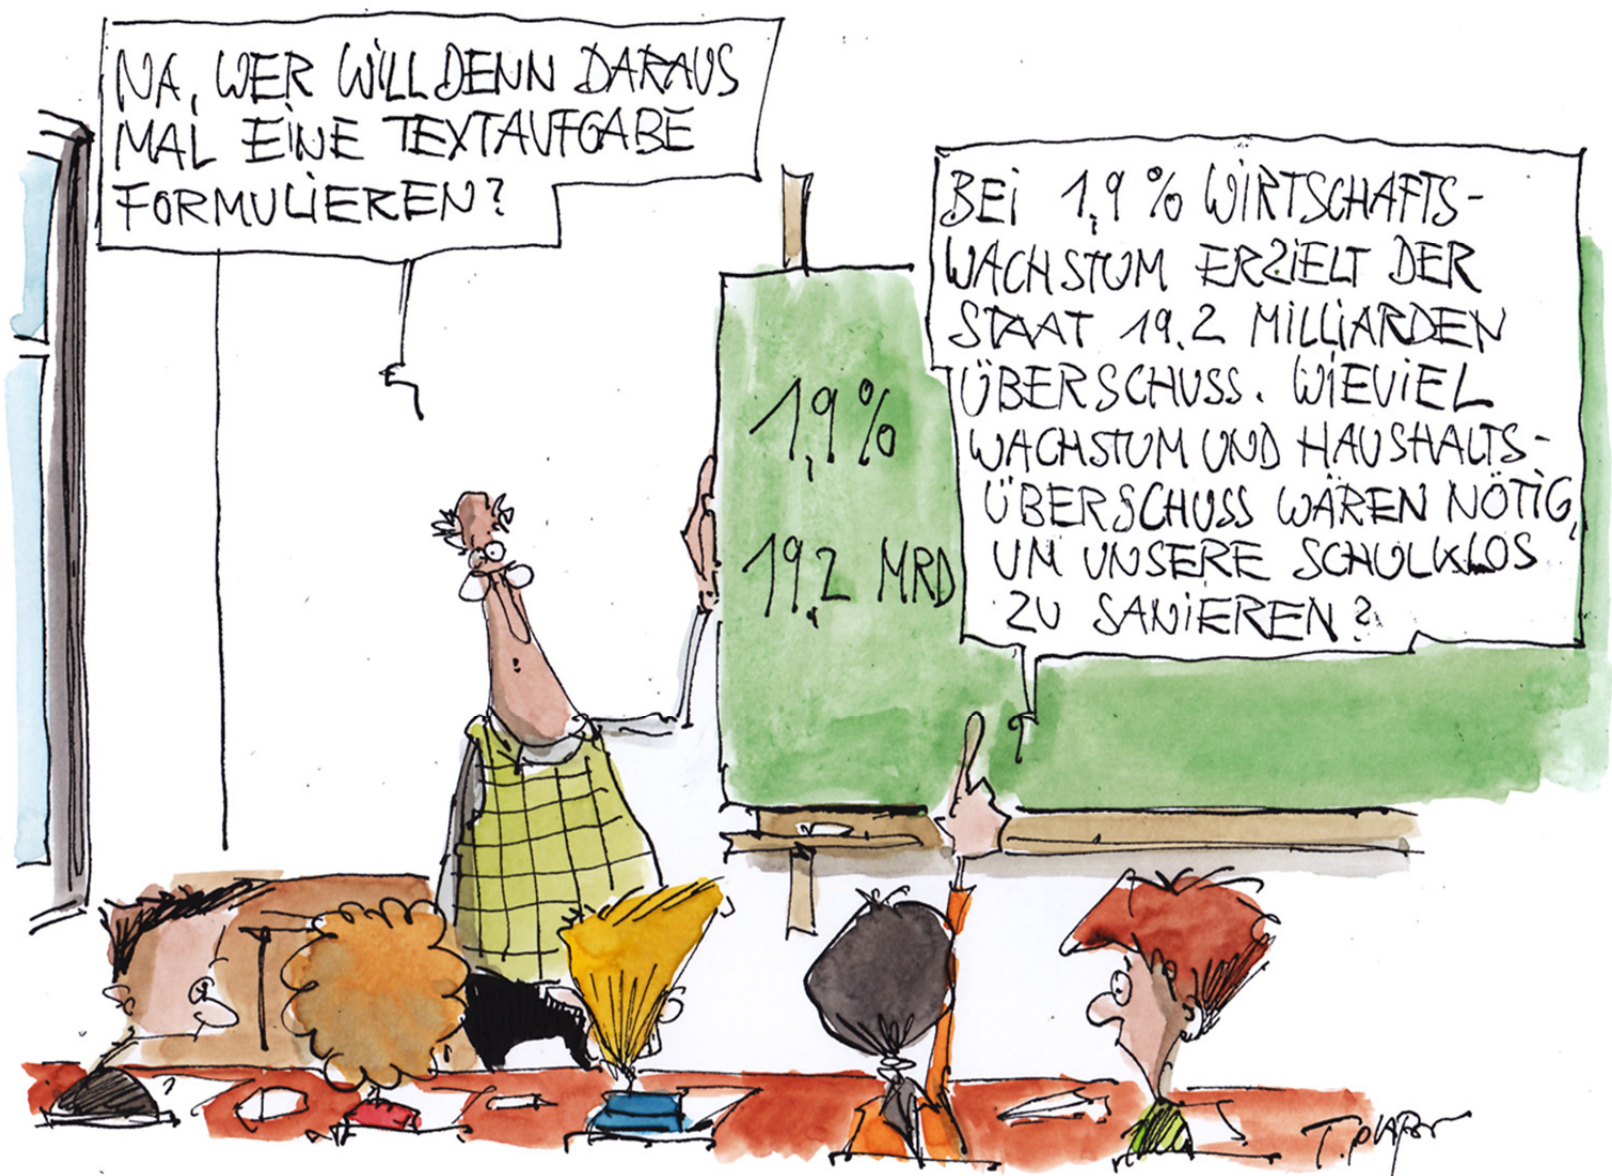 NA, WER WILL DENN DARAUS
MAL EINE TEXTAUFGABE
FORMULIEREN?
BEI 1,9 % WIRTSCHAFTS-
WACHSTUM ERZIELT DER
STAAT 19,2 MILLIARDEN
ÜBERSCHUSS. WIEVIEL
WACHSTUM UND HAUSHALTS-
ÜBERSCHUSS WÄREN NÖTIG,
UM UNSERE SCHULKLOS
ZU SANIEREN?
1,9 %
19,2 MRD